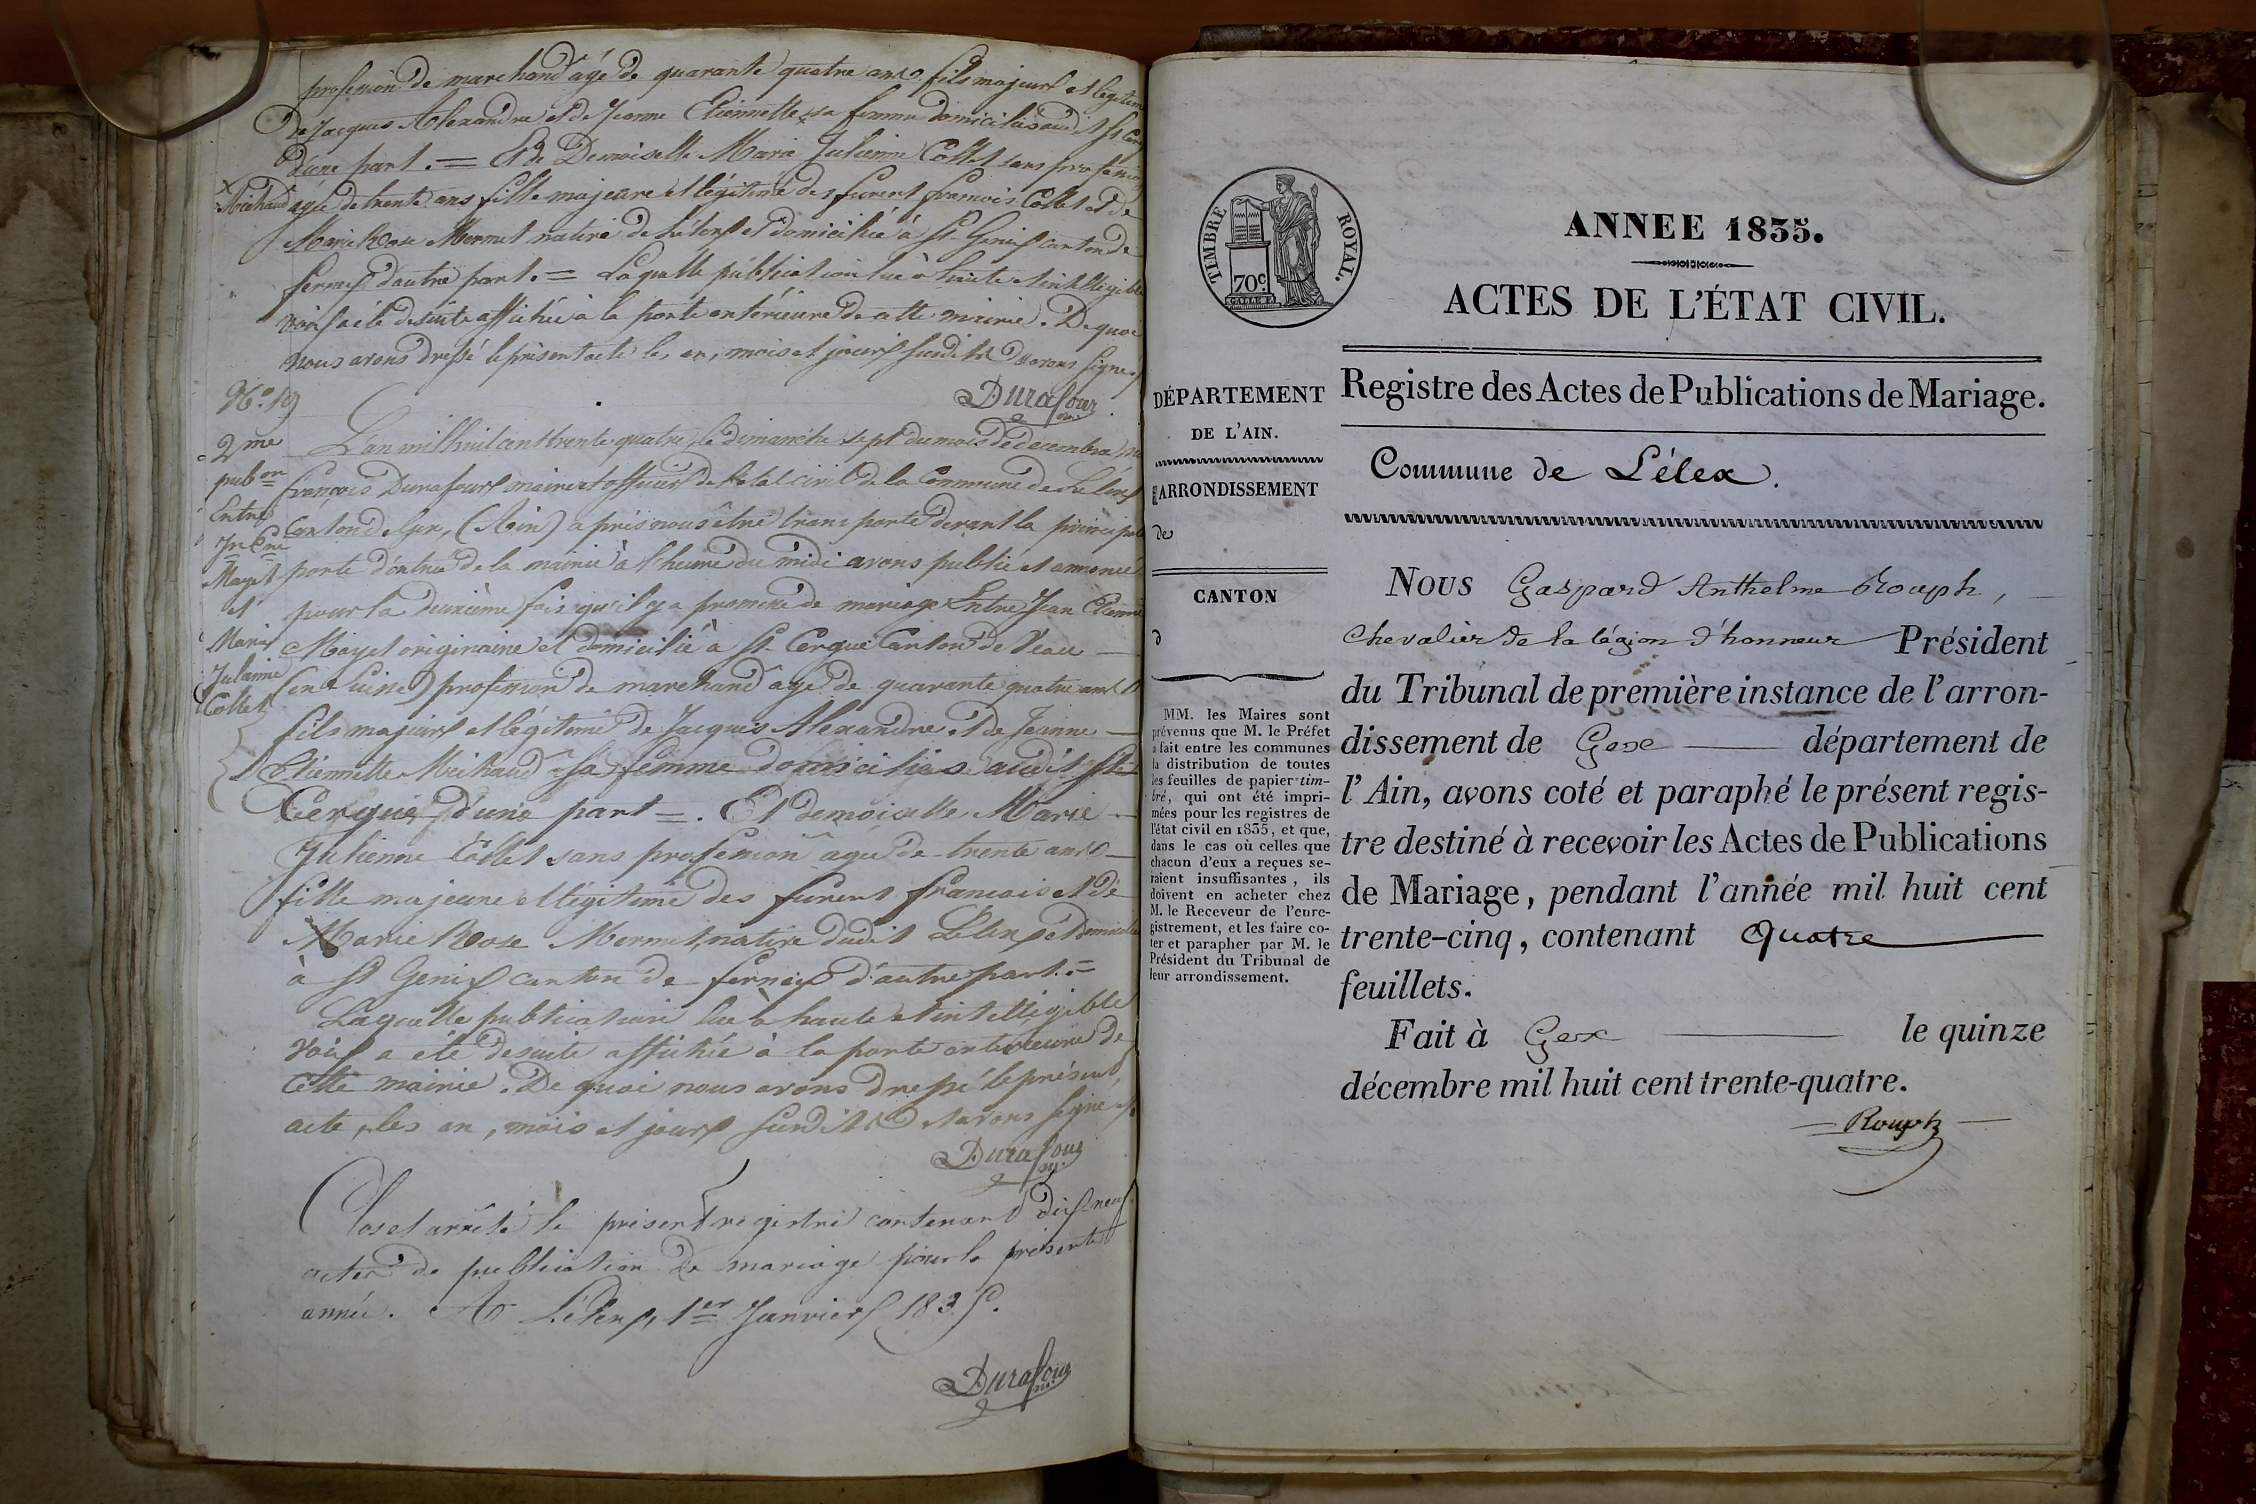 profession de marchand âgé de quarante quatre ans fils majeur et légitime
de Jacques Alexandre et de Jeanne Etiennette sa femme domiciliés audit St Cergue
d'une part. = Et de Demoiselle Marie Julienne Collet sans profession
x Michaud
âgée de trente ans fille majeure et légitime des furent francois Collet et de
Marie Rose Mermet native de Lélex et domiciliée à St Genis canton de
ferney d'autre part. = Laquelle publication lue à haute et intelligible
voix a été de suite affichée à la porte extérieure de cette mairie. De quoi
nous avons dressé le présent acte les an, mois et jours susdits et avons signé
Durafour
No. 19
2me
pubon
Entre
Jn Ene
Mayet
et
Marie
Julienne
Collet
L'an mil huit cent trente quatre, le dimanche sept du mois de décembre, nous
François Durafour maire et officier de l'état civil de la Commune de Lélex
Canton de Gex, (Ain) après nous être transporté devant la principale
porte d'entrée de la mairie à l'heure du midi avons publié et annoncé
pour la deuxième fois qu'il y a promesse de mariage Entre Jean Etienne
Mayet originaire et domicilié à St Cergue Canton de Veau
(en Suisse) profession de marchand âgé de quarante quatre ans
fils majeur et légitime de Jacques Alexandre et de Jeanne
Etiennette Michaud sa femme domiciliés audit St
Cergue d'une part =. Et demoiselle Marie
Julienne Collet sans profession âgée de trente ans
fille majeure et légitime des furent francois et de
Marie Rose Mermet, native dudit Lélex et domiciliée
à St Genis canton de ferney d'autre part. =
Laquelle publication lue à haute et intelligible
voix a été de suite affichée à la porte extérieure de
cette mairie. De quoi nous avons dressé le présent
acte, les an, mois et jours susdits et avons signé
Durafour
Clos et arrêté le présent registre contenant dix neuf
actes de publication de mariage pour la présente
année. A Lélex, 1er Janvier 1835.
Durafour
TIMBRE ROYAL.
70c.
ANNEE 1835.
ACTES DE L'ÉTAT CIVIL.
DÉPARTEMENT
DE L'AIN.
ARRONDISSEMENT
de
CANTON
d
MM. les Maires sont
prévenus que M. le Préfet
a fait entre les communes
la distribution de toutes
les feuilles de papier tim-
bré, qui ont été impri-
mées pour les registres de
l'état civil en 1835, et que,
dans le cas où celles que
chacun d'eux a reçues se-
raient insuffisantes, ils
doivent en acheter chez
M. le Receveur de l'enre-
gistrement, et les faire co-
ter et parapher par M. le
Président du Tribunal de
leur arrondissement.
Registre des Actes de Publications de Mariage.
Commune de Lélex.
Nous Gaspard Anthelme Rouph,
Chevalier de la légion d'honneur Président
du Tribunal de première instance de l'arron-
dissement de Gex département de
l'Ain, avons coté et paraphé le présent regis-
tre destiné à recevoir les Actes de Publications
de Mariage, pendant l'année mil huit cent
trente-cinq, contenant Quatre
feuillets.
Fait à Gex le quinze
décembre mil huit cent trente-quatre.
Rouph